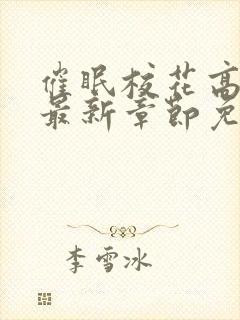 催眠校花高
最新章节免
李雪冰